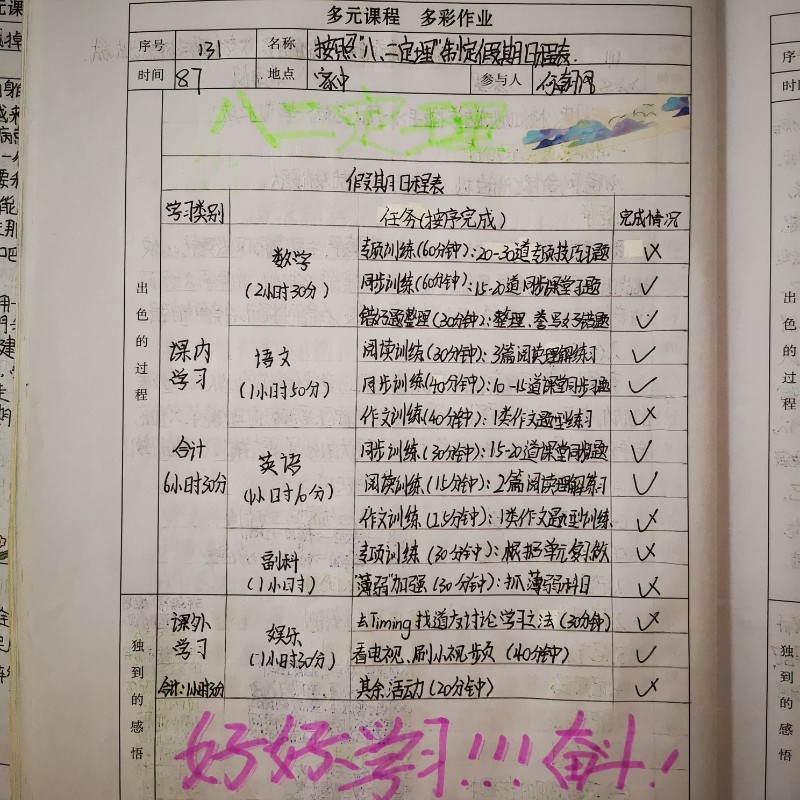 多元课程 多彩作业
序号 131 名称 按照"八、二定理"制定假期日程表.
时间 87 地点 家中 参与人
八二定理
假期日程表
学习类别 任务(按序完成) 完成情况
出色的过程
课内学习
合计
6小时30分
数学
(2小时30分)
专项训练(60分钟):20-30道专项技巧习题 ×
同步训练(60分钟):15-20道同步课堂习题 ✓
错好题整理(30分钟):整理、誊写好错题 ✓
语文
(1小时50分)
阅读训练(30分钟):3篇阅读理解练习 ✓
同步训练(40分钟):10-15道课堂同步习题 ✓
作文训练(40分钟):1类作文题型练习 ×
英语
(1小时10分)
同步训练(30分钟):15-20道课堂同步题 ✓
阅读训练(15分钟):2篇阅读理解练习 ✓
作文训练(25分钟):1类作文题型训练 ×
副科
(1小时)
专项训练(30分钟):根据单元复习做 ×
"薄弱"加强(30分钟):抓薄弱科目 ×
独到的感悟
课外学习
合计:1小时30分
娱乐
(1小时30分)
去Timing找道友讨论学习之法(30分钟) ×
看电视、刷小视步页(40分钟) ✓
其余活动(20分钟) ×
好好学习!!!奋斗!